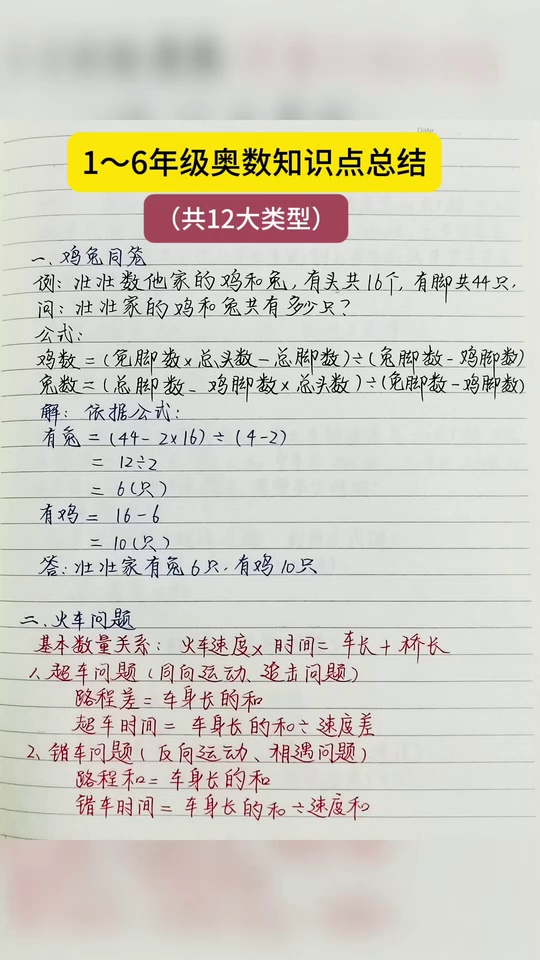 Date
1～6年级奥数知识点总结
（共12大类型）
一、鸡兔同笼
例：壮壮数他家的鸡和兔，有头共16个，有脚共44只，
问：壮壮家的鸡和兔共有多少只？
公式：
鸡数＝(兔脚数×总头数－总脚数)÷(兔脚数－鸡脚数)
兔数＝(总脚数－鸡脚数×总头数)÷(兔脚数－鸡脚数)
解：依据公式：
有兔＝(44－2×16)÷(4－2)
＝12÷2
＝6(只)
有鸡＝16－6
＝10(只)
答：壮壮家有兔6只，有鸡10只
二、火车问题
基本数量关系：火车速度×时间＝车长＋桥长
1、超车问题(同向运动、追击问题)
路程差＝车身长的和
超车时间＝车身长的和÷速度差
2、错车问题(反向运动、相遇问题)
路程和＝车身长的和
错车时间＝车身长的和÷速度和